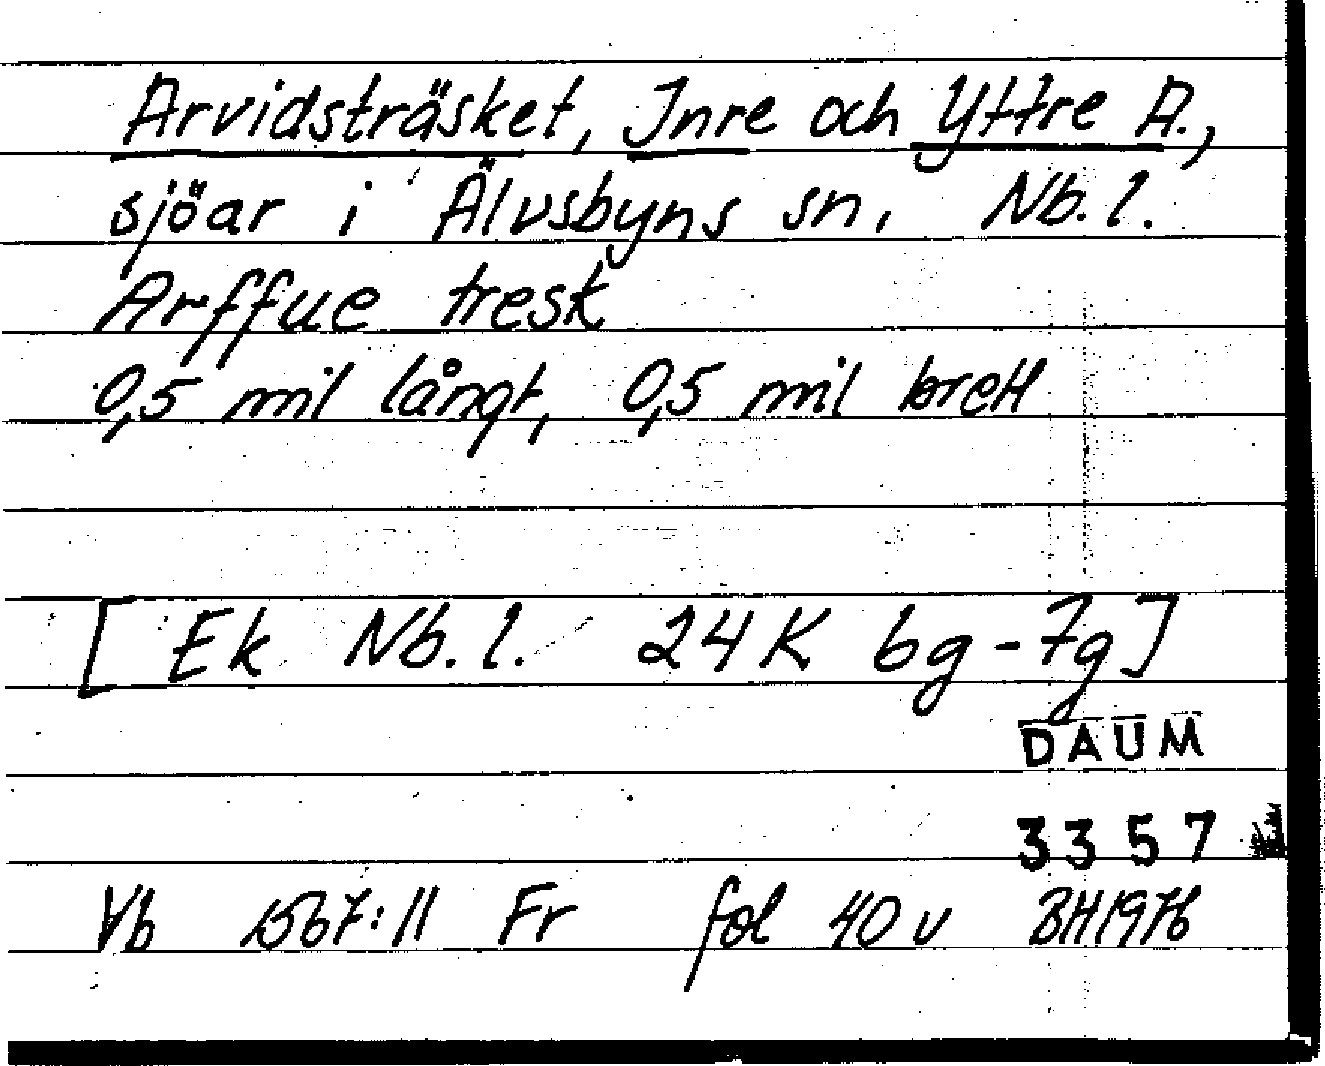 Arvidsträsket, Inre och Yttre A.,
sjöar i Älvsbyns sn, Nb. l.
Arffue tresk
0,5 mil långt, 0,5 mil brett
[Ek Nb. l. 24K 6g-7g]
DAUM
3357
Vb 1567:11 Fr fol 40 v BH1976